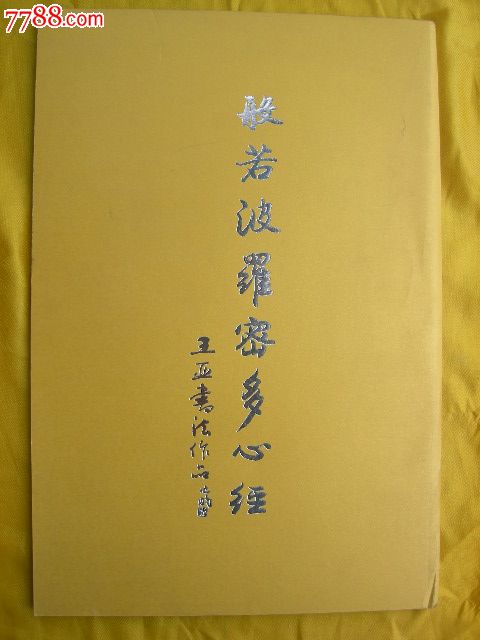 7788.com
般若波羅密多心經
王亚書法作品